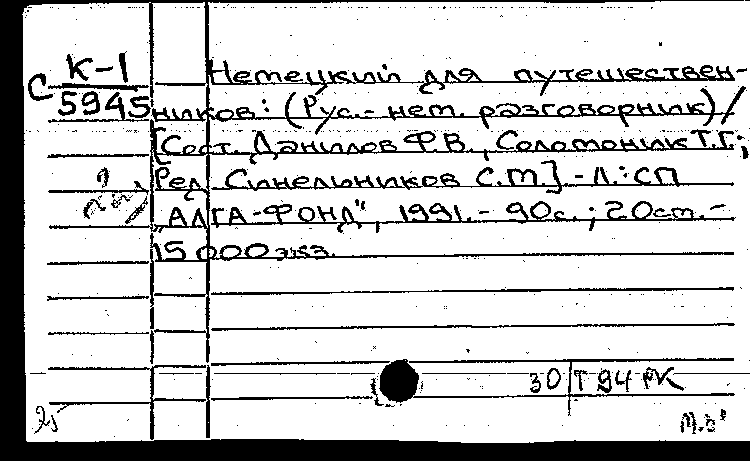 С К-1
5945
Немецкий для путешествен-
ников: (Рус.- нем. разговорник) /
[Сост. Данилов Ф.В., Соломоник Т.Г.;
Ред. Синельников С.М.] - Л.: СП
„АЛГА-ФОНД", 1991. - 90с.; 20см. -
15 000 экз.
30 Т 94 РК
25